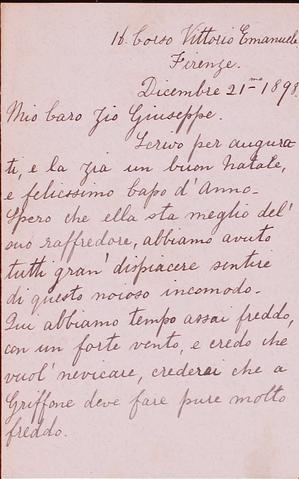 16 Corso Vittorio Emanuele
Firenze.
Dicembre 21mo 1898
Mio Caro Zio Giuseppe.
Scrivo per augura
ti, e la zia un buon Natale,
e felicissimo Capo d'Anno.
Spero che ella sta meglio del'
suo raffredore, abbiamo avuto
tutti gran' dispiacere sentire
di questo noioso incomodo.
Qui abbiamo tempo assai freddo,
con un forte vento, e credo che
vuol' nevicare, crederei che a
Griffone deve fare pure molto
freddo.